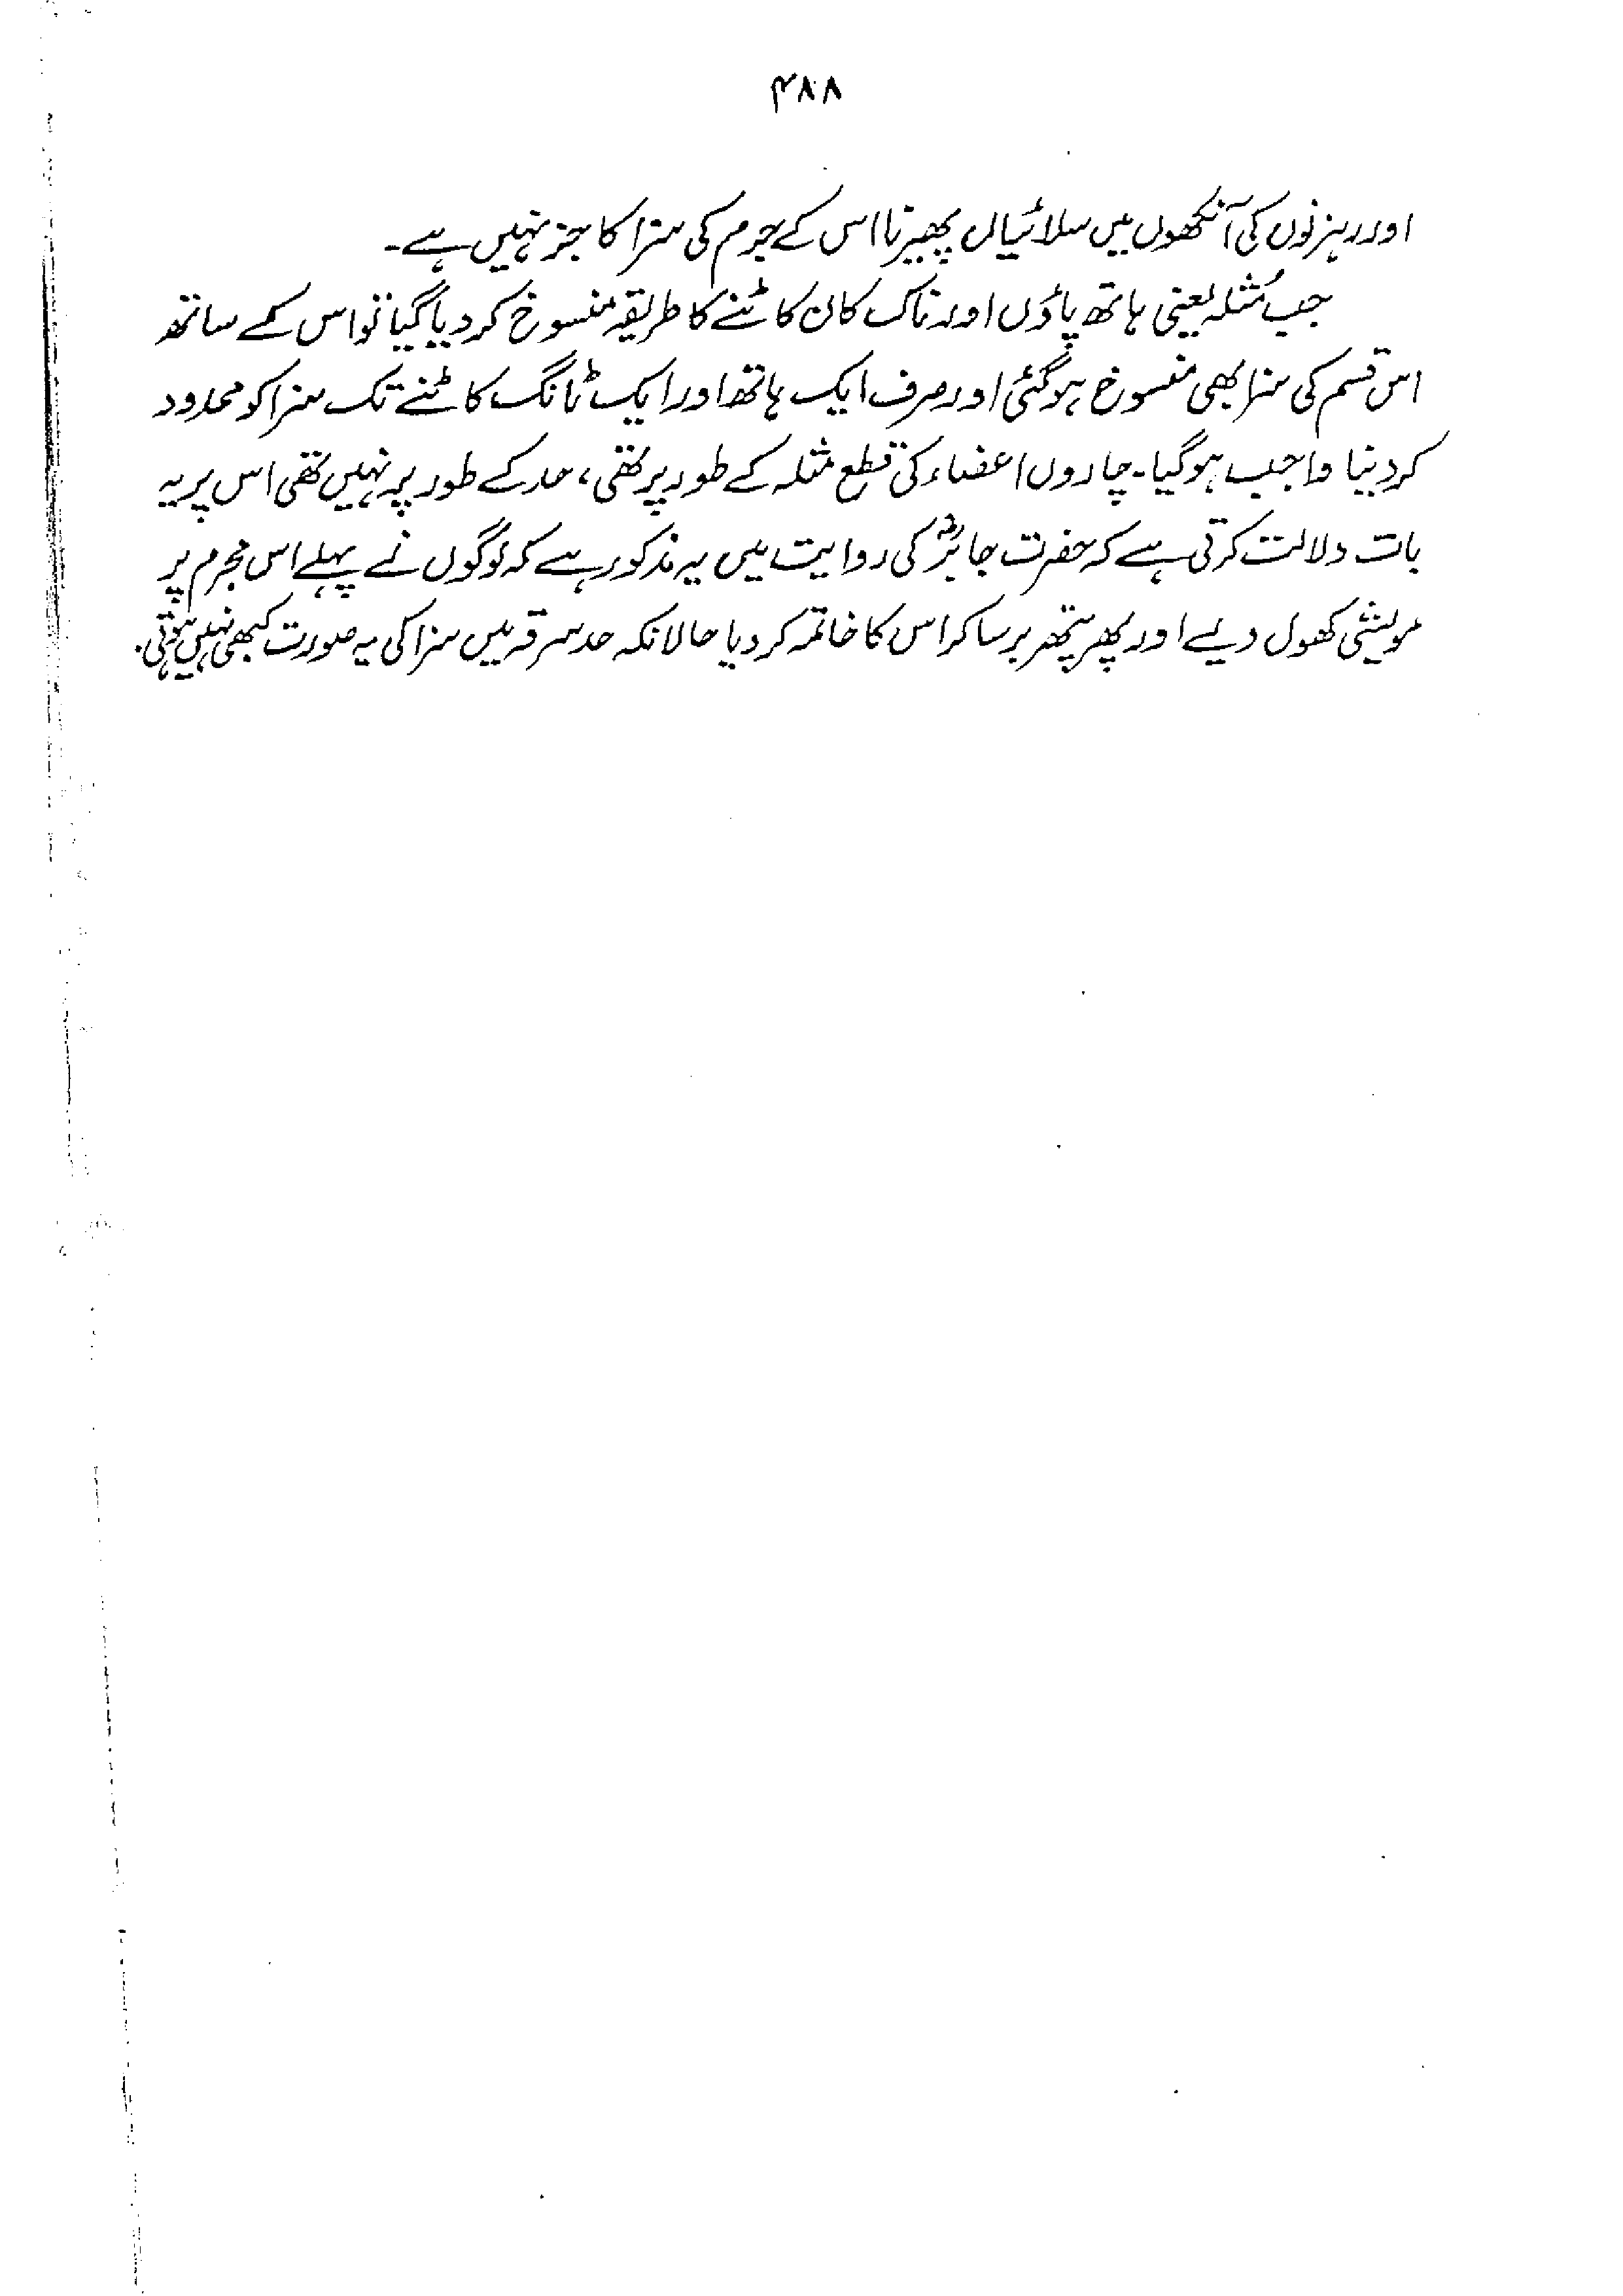 ۴۸۸
اور رہزنوں کی آنکھوں میں سلائیاں پھیرنا اس کے جرم کی سزا کا جز نہیں ہے۔
جب مُثلہ یعنی ہاتھ پاؤں اور ناک کان کاٹنے کا طریقہ منسوخ کر دیا گیا تو اس کے ساتھ
اس قسم کی سزا بھی منسوخ ہوگئی اور صرف ایک ہاتھ اور ایک ٹانگ کاٹنے تک سزا کو محدود
کر دینا واجب ہوگیا۔ چاروں اعضاء کی قطع مثلہ کے طور پر تھی، حد کے طور پر نہیں تھی اس پر یہ
بات دلالت کرتی ہے کہ حضرت جابرؓ کی روایت میں یہ مذکور ہے کہ لوگوں نے پہلے اس مجرم پر
مویشی کھول دیے اور پھر پتھر برسا کر اس کا خاتمہ کر دیا حالانکہ حد سرقہ میں سزا کی یہ صورت کبھی نہیں ہوتی۔